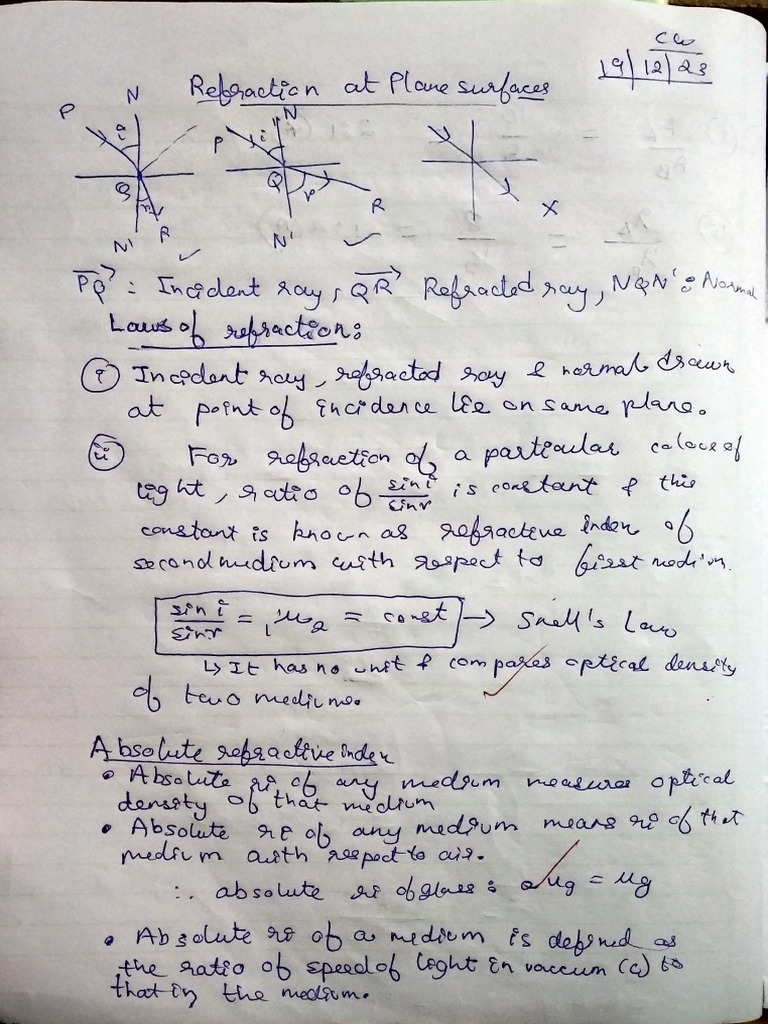 CW
19/12/23
Refraction at Plane surfaces
P N i Q r N' R
P N i Q r N' R
X
PQ→ : Incident ray, QR→ Refracted ray, NQN' : Normal
Laws of refraction:
(i) Incident ray, refracted ray & normal drawn
at point of incidence lie on same plane.
(ii) For refraction of a particular colour of
light, ratio of sin i / sin r is constant & this
constant is known as refractive index of
second medium with respect to first medium.
sin i / sin r = ₁μ₂ = const → Snell's Law
↳ It has no unit & compares optical density
of two mediums.
Absolute refractive index
• Absolute ri of any medium measures optical
density of that medium
• Absolute ri of any medium means ri of that
medium with respect to air.
∴ absolute ri of glass : aμg = μg
• Absolute ri of a medium is defined as
the ratio of speed of light in vaccum (c) to
that in the medium.